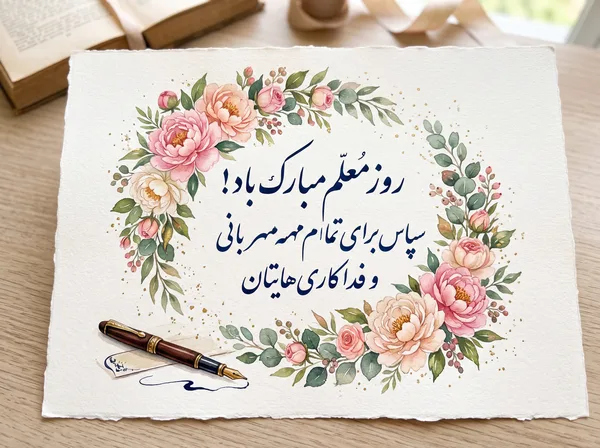 روز مُعلّم مبارک باد!
سپاس برای تماام مهمه مهربانی
و فداکاری هایتان